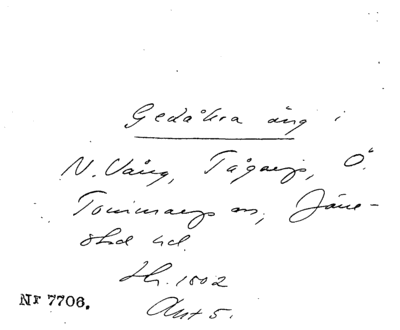 Gedåkra äng i
N. Vång, Tågarp, Ö.
Tommarps sn, Järre-
stad hd.
Hr. 1802
Akt 5.
Nr 7706.